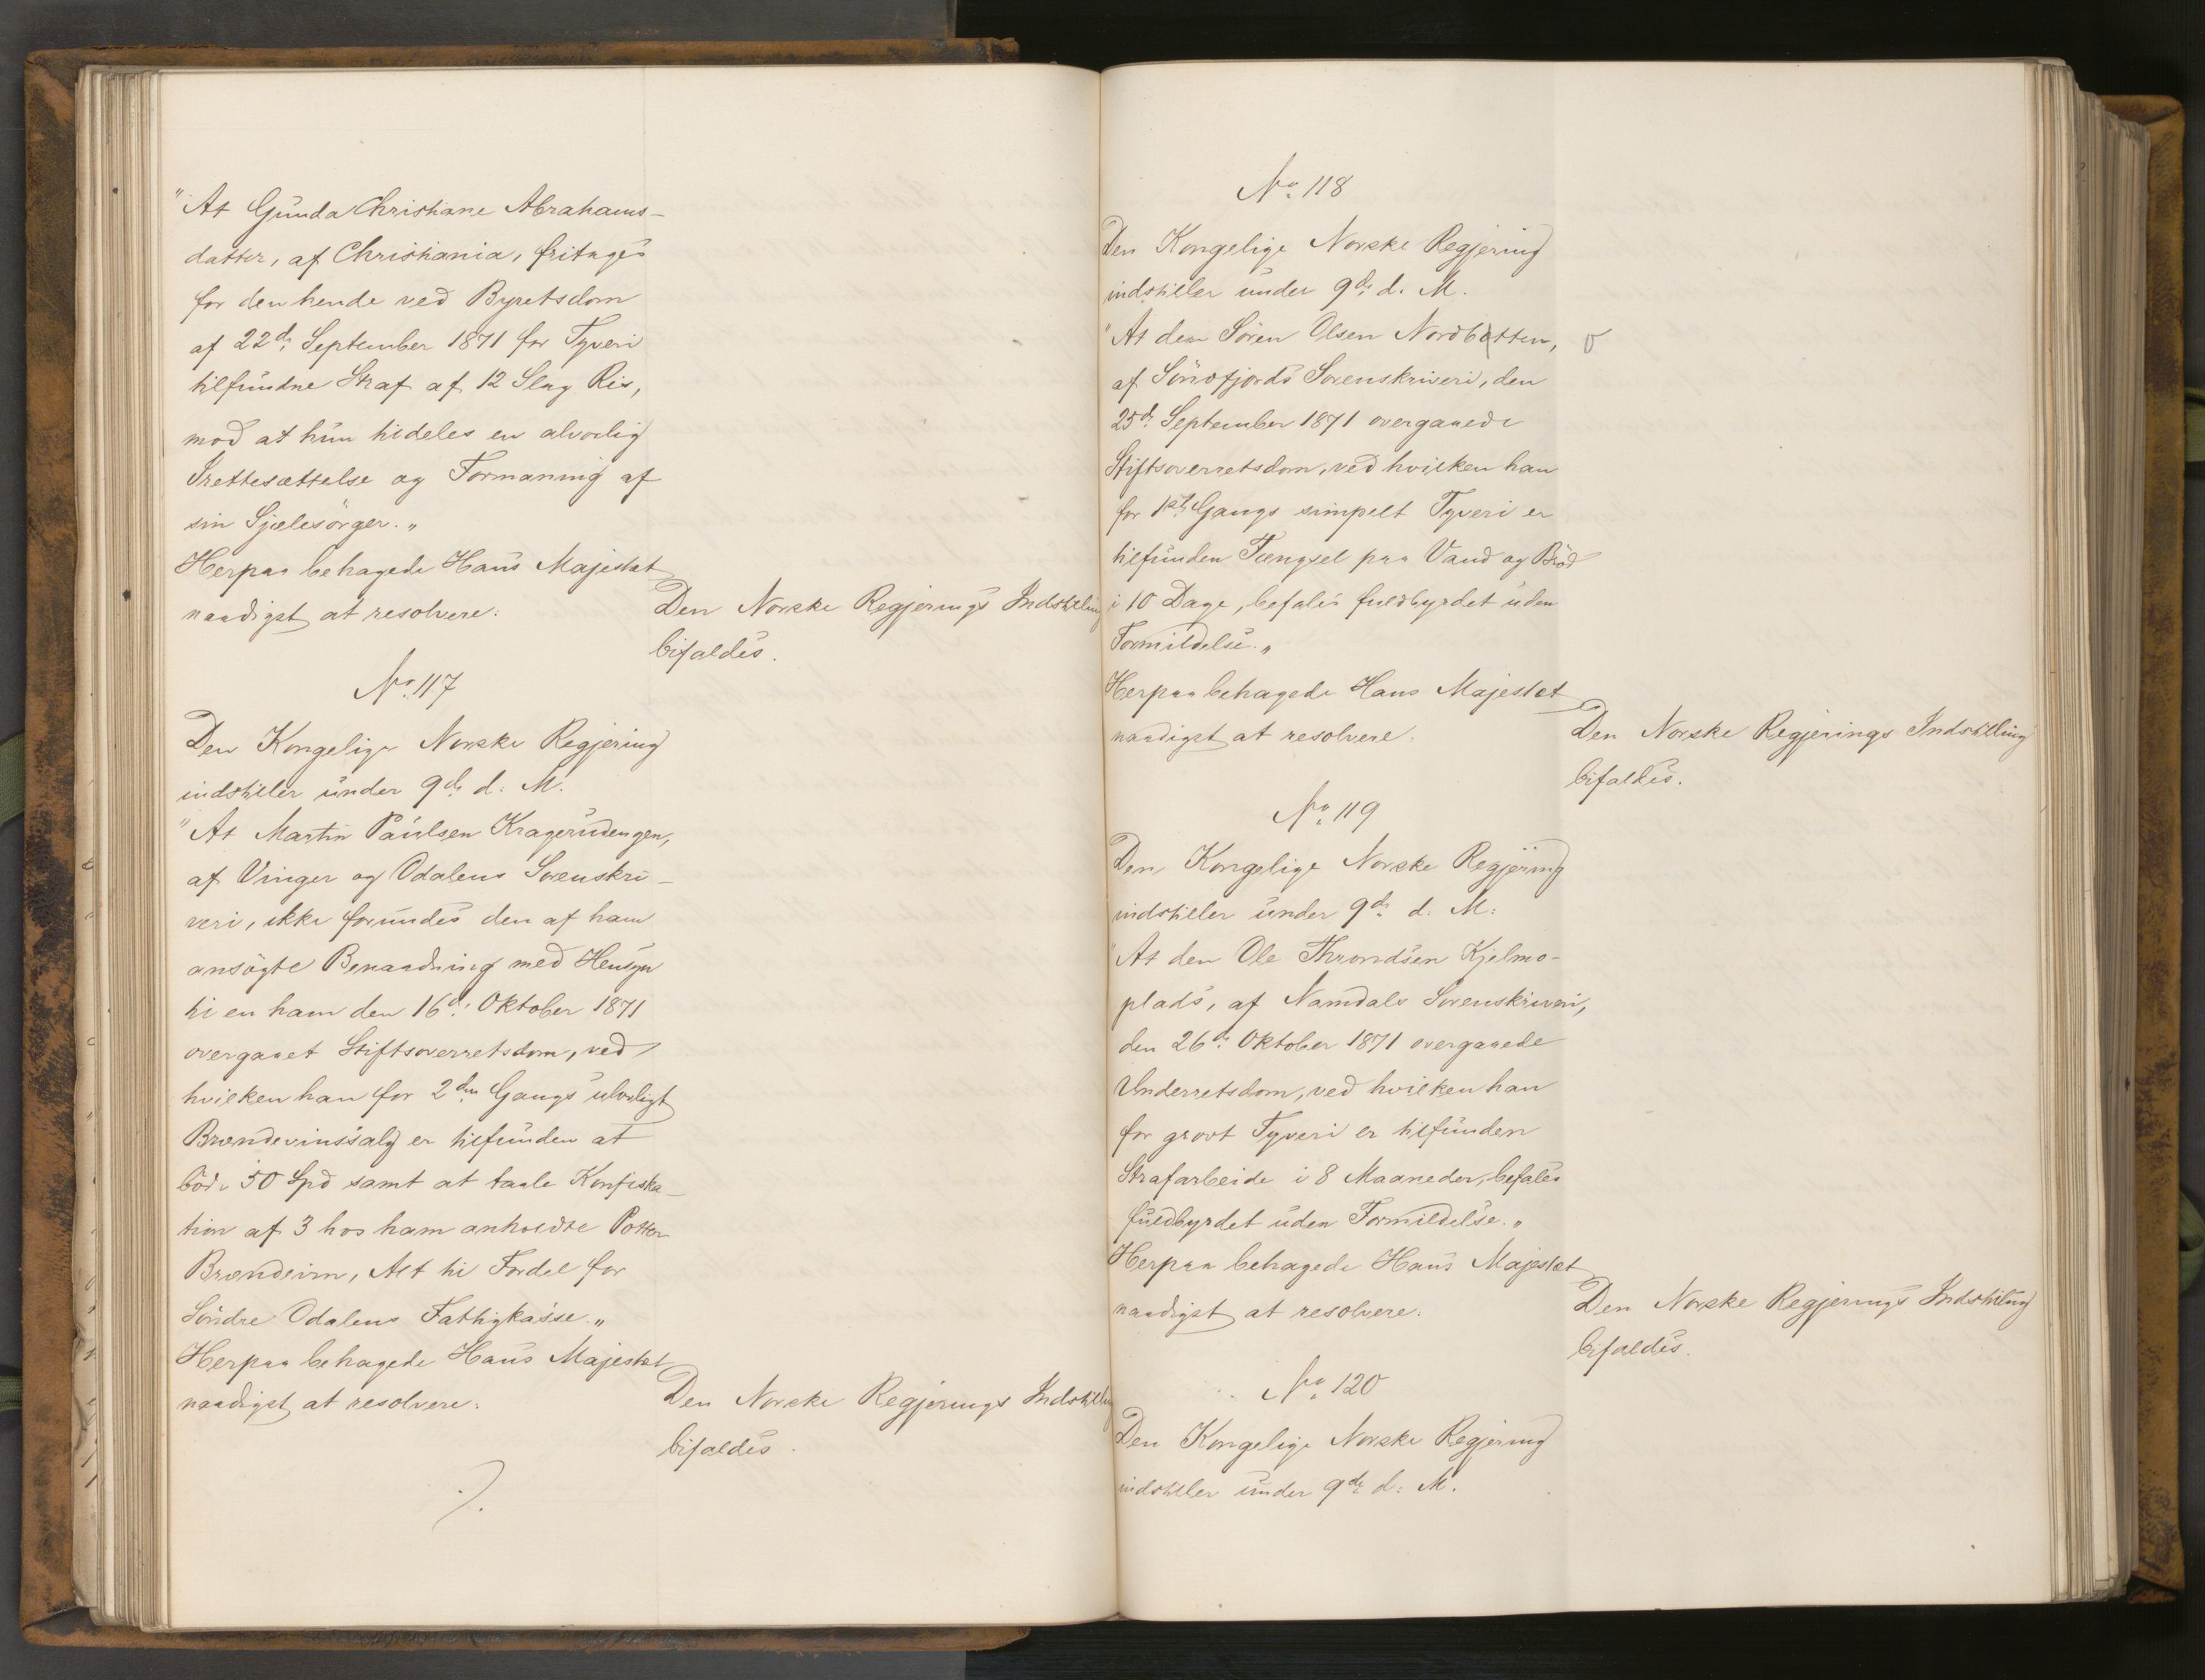 "At Gunda Christiane Abrahams-
datter, af Christiania, fritages
for den hende ved Byretsdom
af 22de September 1871 for Tyveri
tilfundne Straf af 12 Slag Ris,
mod at hun tildeles en alvorlig
Irettesættelse og Formaning af
sin Sjælesörger."
Herpaa behagede Hans Majestæt
naadigst at resolvere:
Den Norske Regjerings Indstilling
bifaldes.
No. 117
Den Kongelige Norske Regjering
indstiller under 9de d. M.
"At Martin Paulsen Kragerudengen,
af Vinger og Odalens Sorenskri-
veri, ikke forundes den af ham
ansögte Benaadning med Hensyn
til en ham den 16de Oktober 1871
overgaaet Stiftsoverretsdom, ved
hvilken han for 2den Gangs ulovligt
Brændevinssalg er tilfunden at
böde 50 Spd samt at taale Konfiska-
tion af 3 hos ham anholdte Potter
Brændevin, Alt til Fordel for
Söndre Odalens Fattigkasse."
Herpaa behagede Hans Majestæt
naadigst at resolvere:
Den Norske Regjerings Indstilling
bifaldes.
No. 118
Den Kongelige Norske Regjering
indstiller under 9de d. M.
"At den Sören Olsen Nordbotten, o
af Söndfjords Sorenskriveri, den
25de September 1871 overgaaede
Stiftsoverretsdom, ved hvilken han
for 1ste Gangs simpelt Tyveri er
tilfunden Fængsel paa Vand og Bröd
i 10 Dage, befales fuldbyrdet uden
Formildelse."
Herpaa behagede Hans Majestæt
naadigst at resolvere:
Den Norske Regjerings Indstilling
bifaldes.
No. 119
Den Kongelige Norske Regjering
indstiller under 9de d. M.
"At den Ole Throndsen Kjelmo-
plads, af Namdals Sorenskriveri,
den 26de Oktober 1871 overgaaede
Underretsdom, ved hvilken han
for grovt Tyveri er tilfunden
Strafarbeide i 8 Maaneder, befales
fuldbyrdet uden Formildelse."
Herpaa behagede Hans Majestæt
naadigst at resolvere:
Den Norske Regjerings Indstilling
bifaldes.
No. 120
Den Kongelige Norske Regjering
indstiller under 9de d. M.